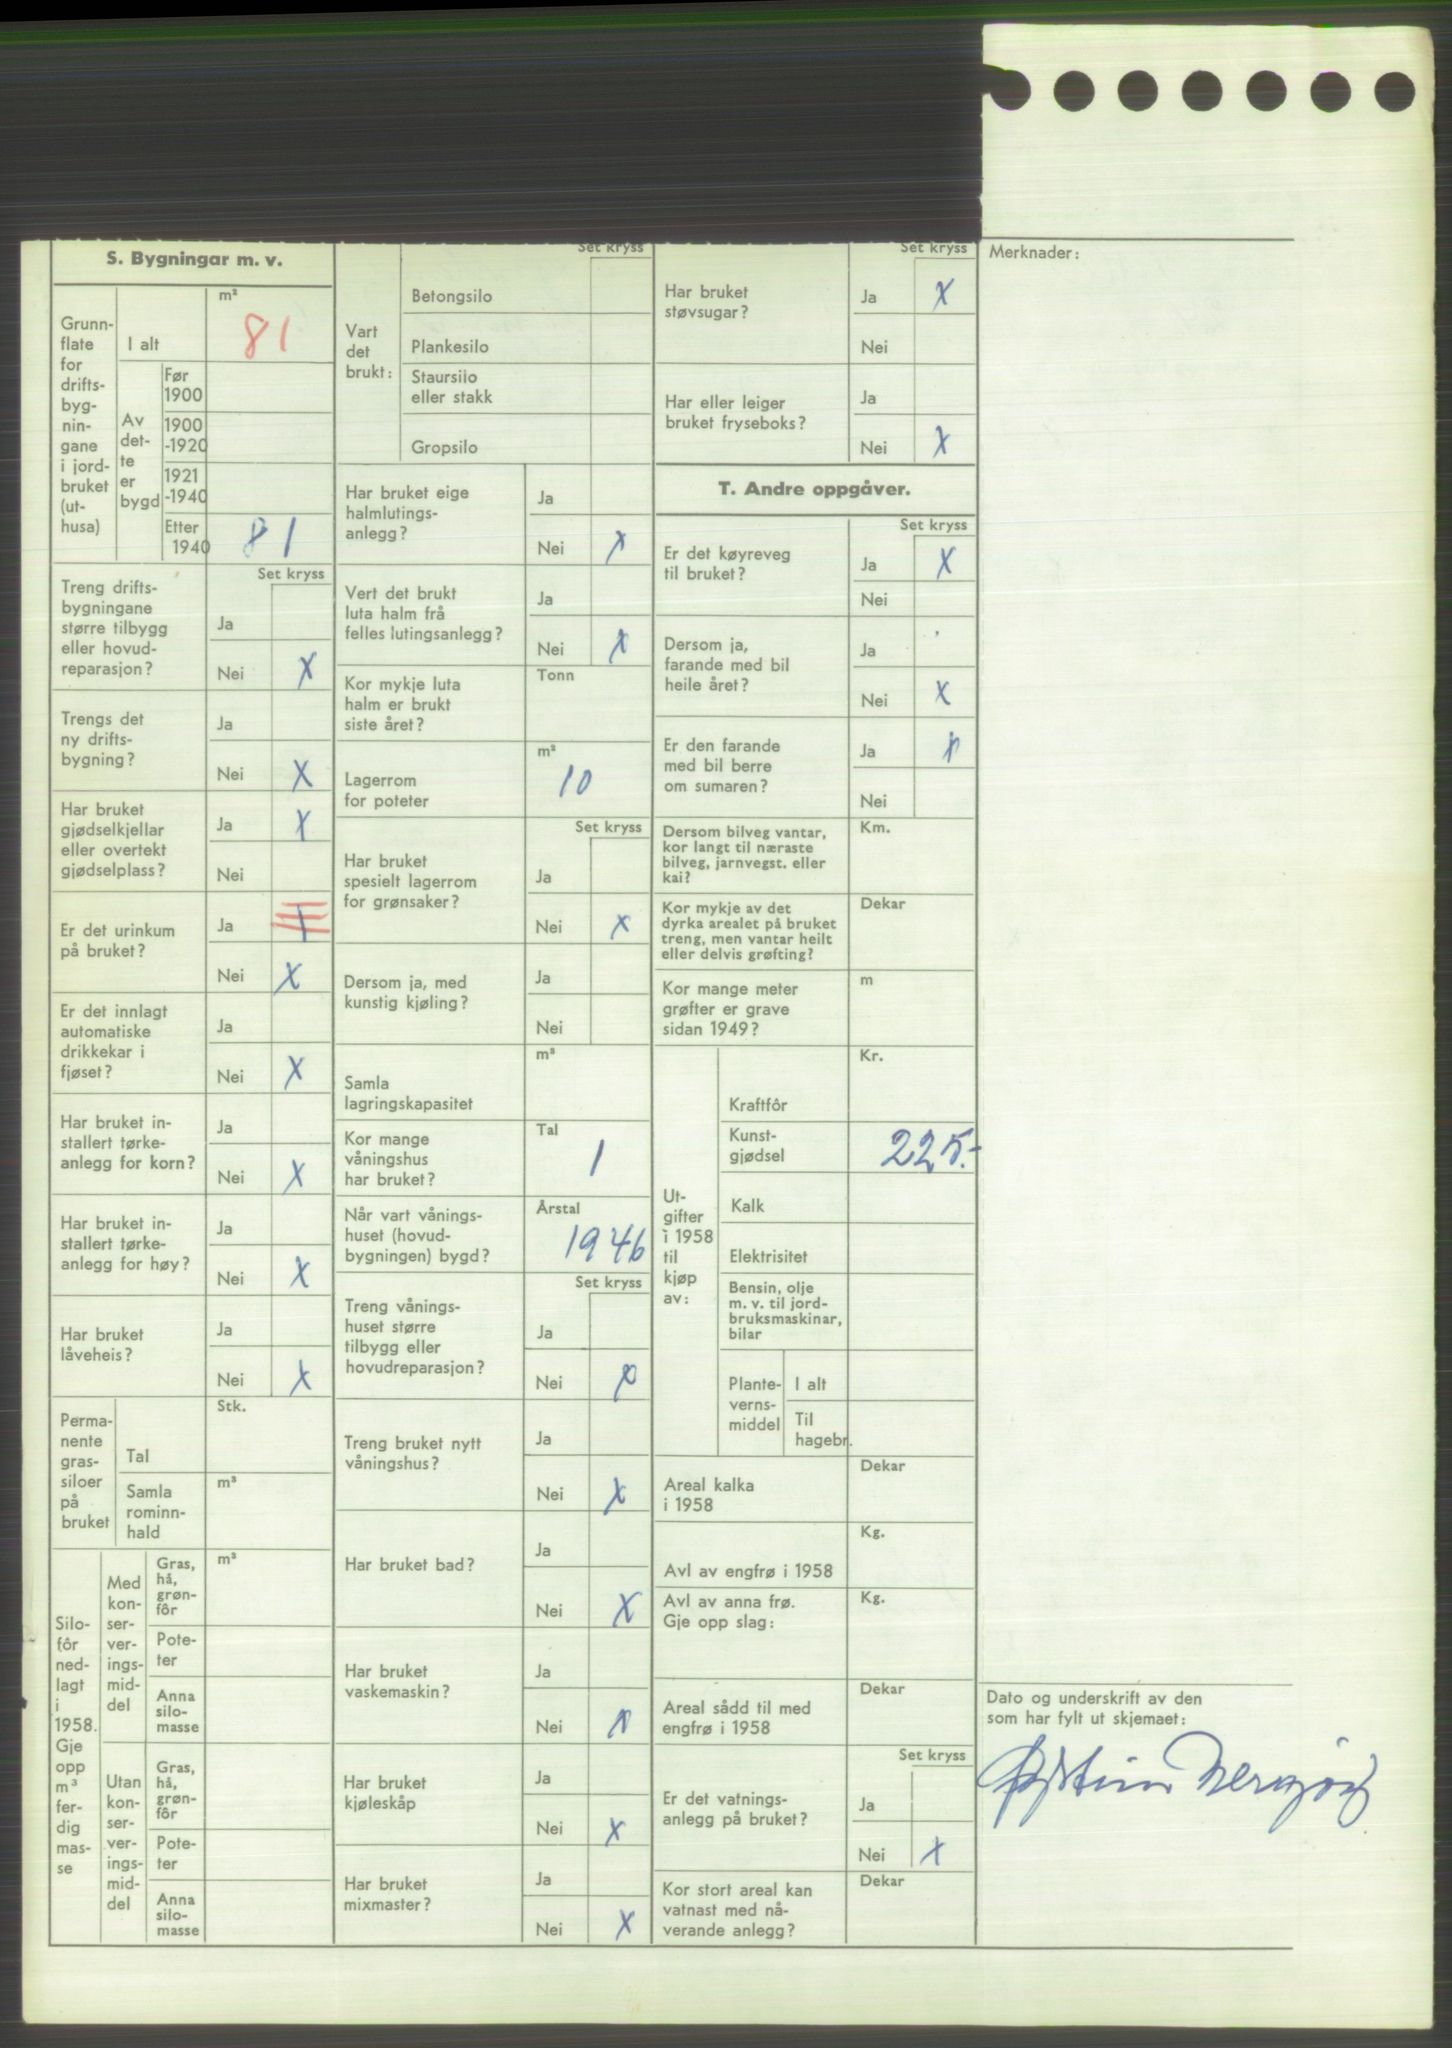 S. Bygningar m. v.
Grunn-
flate
for
drifts-
byg-
nin-
gane
i jord-
bruket
(ut-
husa)
I alt
m²
81
Av
det-
te
er
bygd
Før
1900
1900
-1920
1921
-1940
Etter
1940
81
Set kryss
Treng drifts-
bygningane
større tilbygg
eller hovud-
reparasjon?
Ja
Nei X
Trengs det
ny drifts-
bygning?
Ja
Nei X
Har bruket
gjødselkjellar
eller overtekt
gjødselplass?
Ja X
Nei
Er det urinkum
på bruket?
Ja
Nei X
Er det innlagt
automatiske
drikkekar i
fjøset?
Ja
Nei X
Har bruket in-
stallert tørke-
anlegg for korn?
Ja
Nei X
Har bruket in-
stallert tørke-
anlegg for høy?
Ja
Nei X
Har bruket
låveheis?
Ja
Nei X
Perma-
nente
gras-
siloer
på
bruket
Tal
Stk.
Samla
rominn-
hald
m³
Silo-
fôr
ned-
lagt
i
1958.
Gje
opp
m³
fer-
dig
mas-
se
Med
kon-
ser-
ver-
ings-
mid-
del
Gras,
hå,
grøn-
fôr
m³
Pote-
ter
Anna
silo-
masse
Utan
kon-
ser-
ver-
ings-
mid-
del
Gras,
hå,
grøn-
fôr
Pote-
ter
Anna
silo-
masse
Set kryss
Vart
det
brukt:
Betongsilo
Plankesilo
Staursilo
eller stakk
Gropsilo
Har bruket eige
halmlutings-
anlegg?
Ja
Nei X
Vert det brukt
luta halm frå
felles lutingsanlegg?
Ja
Nei X
Kor mykje luta
halm er brukt
siste året?
Tonn
Lagerrom
for poteter
m²
10
Set kryss
Har bruket
spesielt lagerrom
for grønsaker?
Ja
Nei X
Dersom ja, med
kunstig kjøling?
Ja
Nei
Samla
lagringskapasitet
m³
Kor mange
våningshus
har bruket?
Tal
1
Når vart vånings-
huset (hovud-
bygningen) bygd?
Årstal
1946
Set kryss
Treng vånings-
huset større
tilbygg eller
hovudreparasjon?
Ja
Nei X
Treng bruket nytt
våningshus?
Ja
Nei X
Har bruket bad?
Ja
Nei X
Har bruket
vaskemaskin?
Ja
Nei X
Har bruket
kjøleskåp
Ja
Nei X
Har bruket
mixmaster?
Ja
Nei X
Set kryss
Har bruket
støvsugar?
Ja X
Nei
Har eller leiger
bruket fryseboks?
Ja
Nei X
T. Andre oppgåver.
Set kryss
Er det køyreveg
til bruket?
Ja X
Nei
Dersom ja,
farande med bil
heile året?
Ja
Nei X
Er den farande
med bil berre
om sumaren?
Ja X
Nei
Dersom bilveg vantar,
kor langt til næraste
bilveg, jarnvegst. eller
kai?
Km.
Kor mykje av det
dyrka arealet på bruket
treng, men vantar heilt
eller delvis grøfting?
Dekar
Kor mange meter
grøfter er grave
sidan 1949?
m
Ut-
gifter
i 1958
til
kjøp
av:
Kraftfôr
Kr.
Kunst-
gjødsel
225.-
Kalk
Elektrisitet
Bensin, olje
m. v. til jord-
bruksmaskinar,
bilar
Plante-
verns-
middel
I alt
Til
hagebr.
Areal kalka
i 1958
Dekar
Avl av engfrø i 1958
Kg.
Avl av anna frø.
Gje opp slag:
Kg.
Areal sådd til med
engfrø i 1958
Dekar
Set kryss
Er det vatnings-
anlegg på bruket?
Ja
Nei X
Kor stort areal kan
vatnast med nå-
verande anlegg?
Dekar
Merknader:
Dato og underskrift av den
som har fylt ut skjemaet: